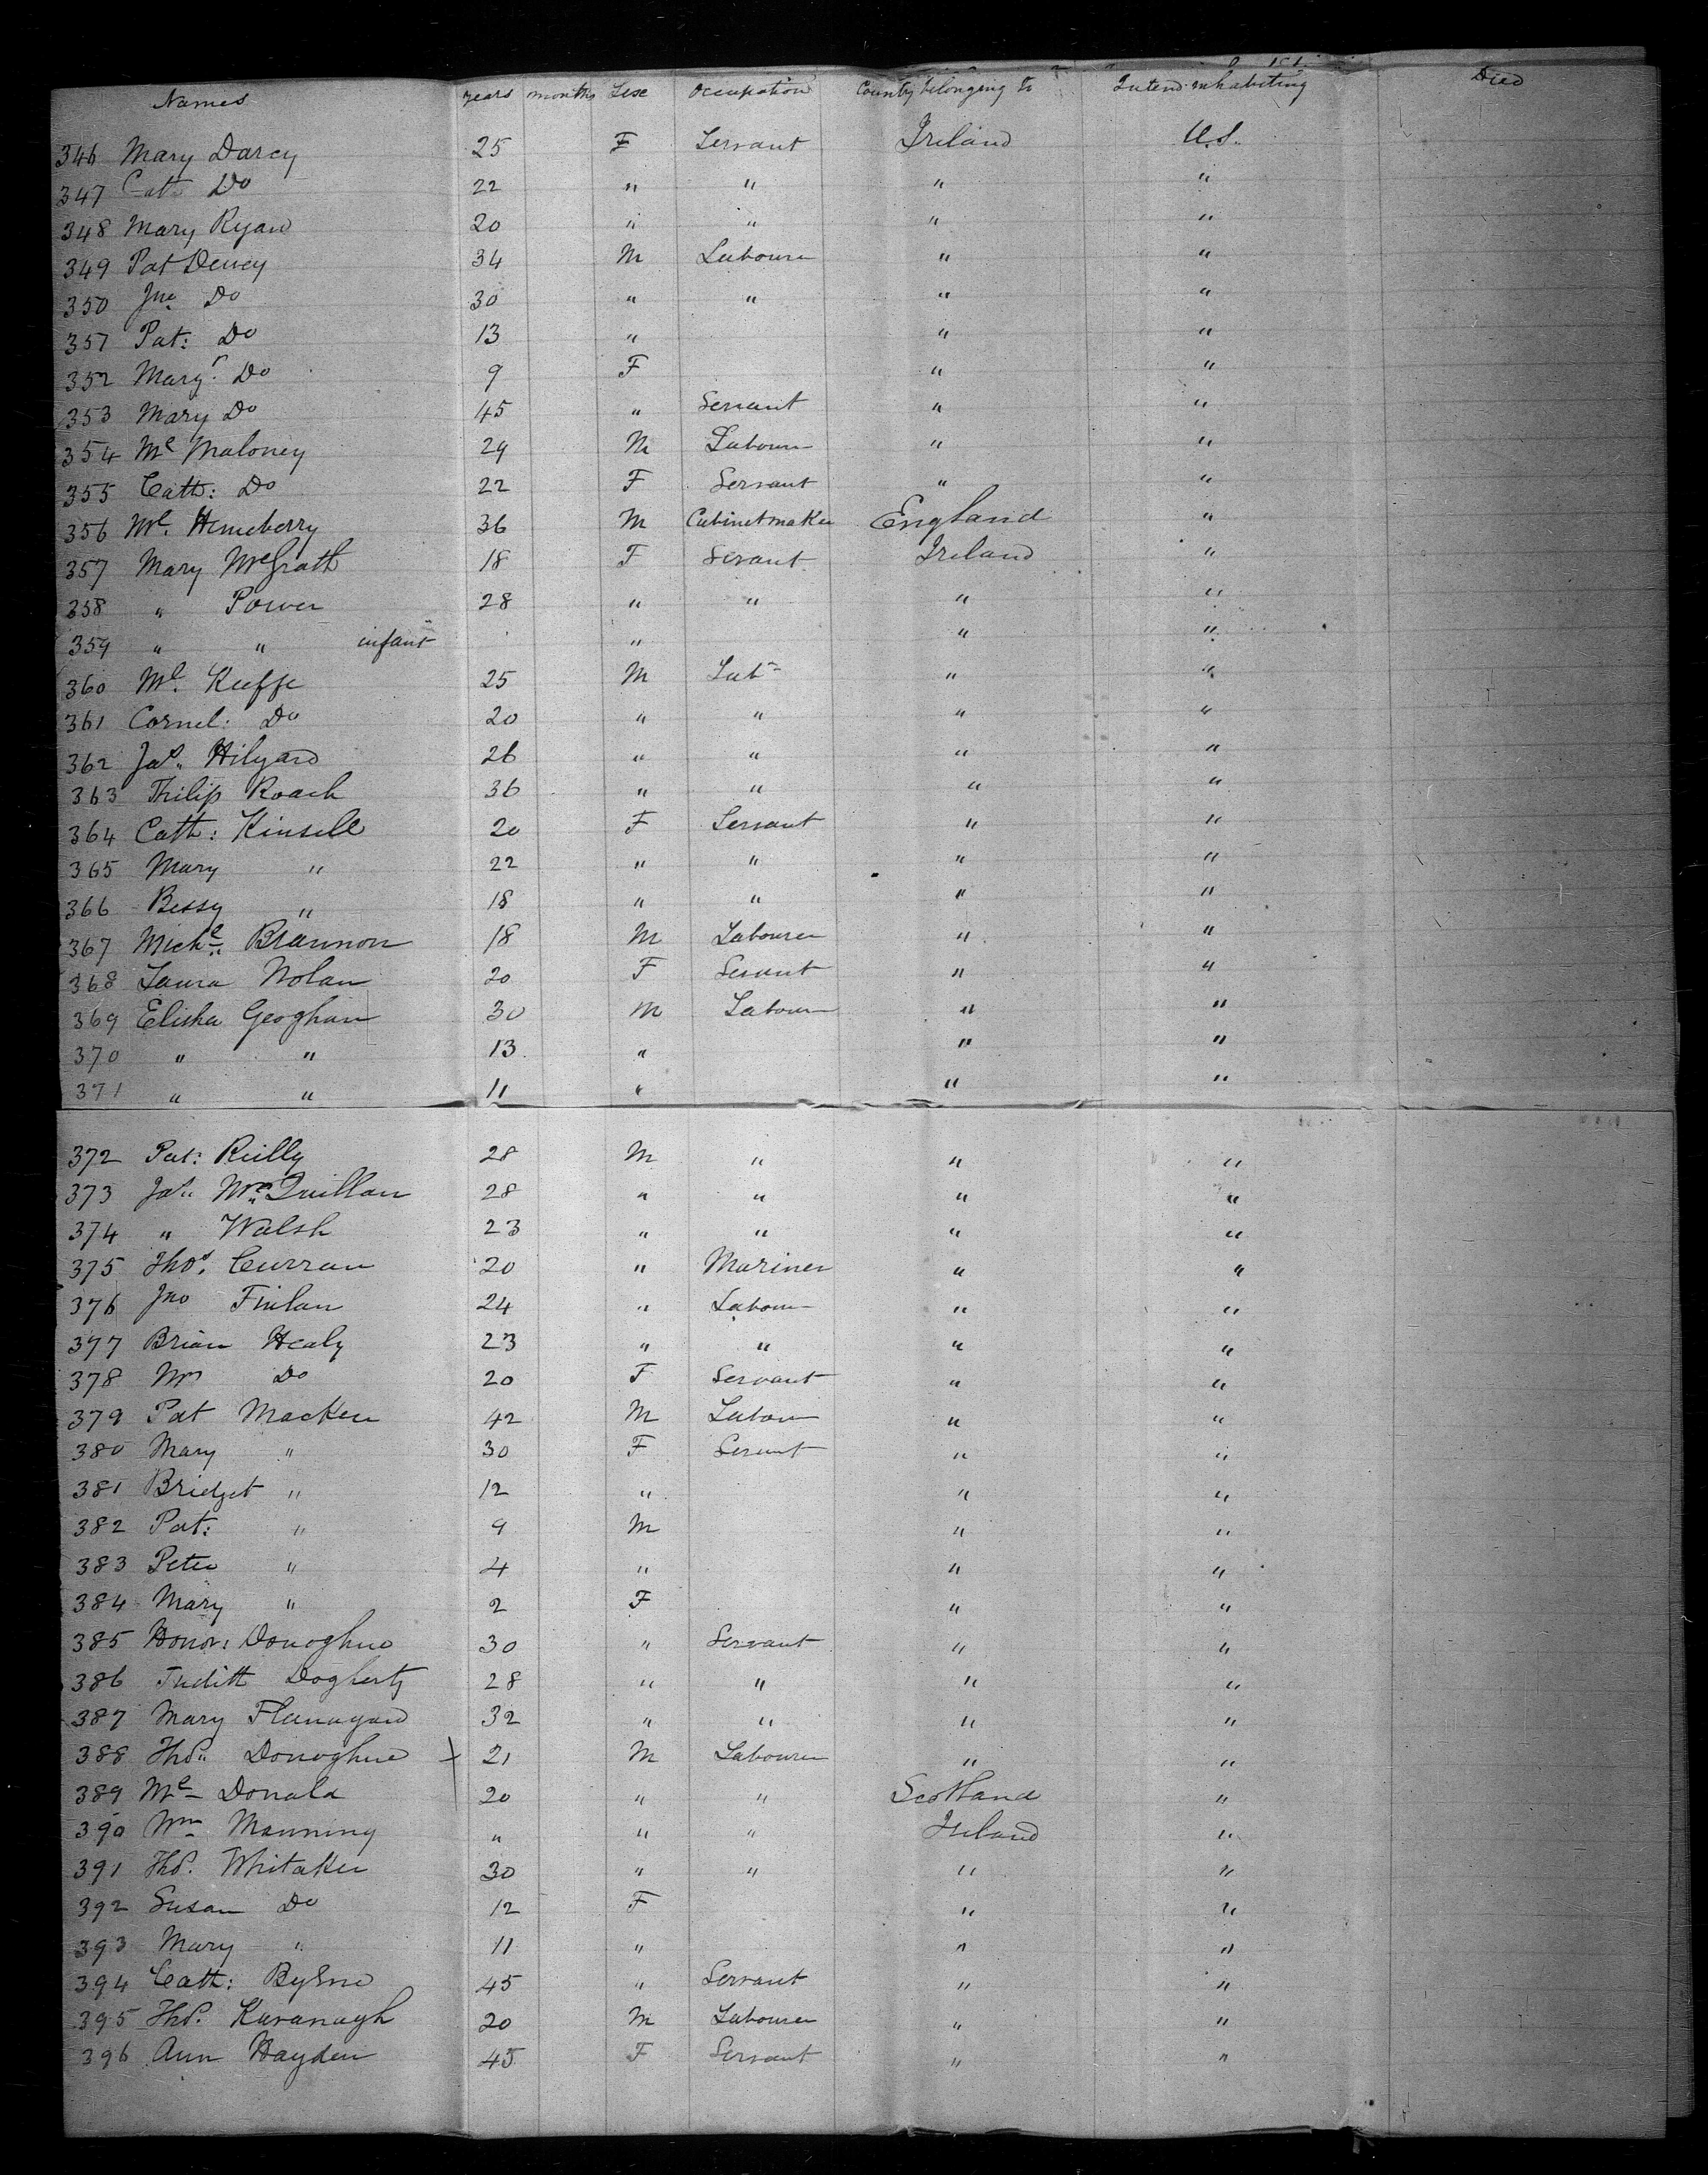 Names years months Sex Occupation County belonging to Intend inhabiting Died
346 Mary Darcy 25 F Servant Ireland U.S.
347 Cath Do 22 " " " "
348 Mary Ryan 20 " " " "
349 Pat Dewey 34 M Labourer " "
350 Jno Do 30 " " " "
351 Pat: Do 13 " " "
352 Margt Do 9 F " "
353 Mary Do 45 " Servant " "
354 Ml Maloney 29 M Labourer " "
355 Cath: Do 22 F Servant " "
356 Ml. Henneberry 36 M Cabinetmaker England "
357 Mary McGrath 18 F Servant Ireland "
358 " Power 28 " " " "
359 " " infant " " "
360 Ml. Keeffe 25 M Labr " "
361 Cornel: Do 20 " " " "
362 Jas. Hilyard 26 " " " "
363 Philip Roach 36 " " " "
364 Cath: Kinsell 20 F Servant " "
365 Mary " 22 " " " "
366 Bessy " 18 " " " "
367 Michl. Brannon 18 M Labourer " "
368 Laura Nolan 20 F Servant " "
369 Elisha Geoghan 30 M Labour " "
370 " " 13 " " "
371 " " 11 " " "
372 Pat: Reilly 28 M " " "
373 Jas McQuillan 28 " " " "
374 " Walsh 23 " " " "
375 Thos. Curran 20 " Mariner " "
376 Jno Finlan 24 " Labour " "
377 Brian Healy 23 " " " "
378 Mrs Do 20 F Servant " "
379 Pat Macken 42 M Labour " "
380 Mary " 30 F Servant " "
381 Bridget " 12 " " "
382 Pat: " 9 M " "
383 Peter " 4 " " "
384 Mary " 2 F " "
385 Honor: Donoghue 30 " Servant " "
386 Judith Dogherty 28 " " " "
387 Mary Flanagan 32 " " " "
388 Thos Donoghue x 21 M Labourer " "
389 Mc Donald 20 " " Scotland "
390 Wm Manning " " " Ireland "
391 Thos. Whitaker 30 " " " "
392 Susan Do 12 F " "
393 Mary " 11 " " "
394 Cath: Byrne 45 " Servant " "
395 Thos. Kavanagh 20 M Labourer " "
396 Ann Hayden 45 F Servant " "